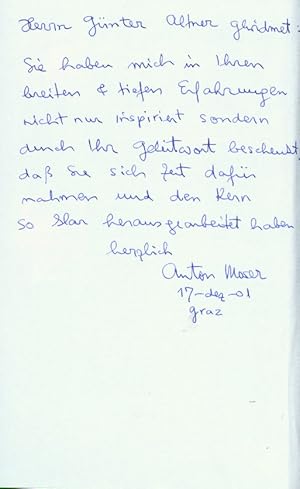 Herrn Günter Altner gewidmet:
Sie haben mich in Ihren
breiten & tiefen Erfahrungen
nicht nur inspiriert sondern
durch Ihr Geleitwort beschenkt,
daß Sie sich Zeit dafür
nahmen und den Kern
so klar herausgearbeitet haben
herzlich
Anton Moser
17-dez-01
graz